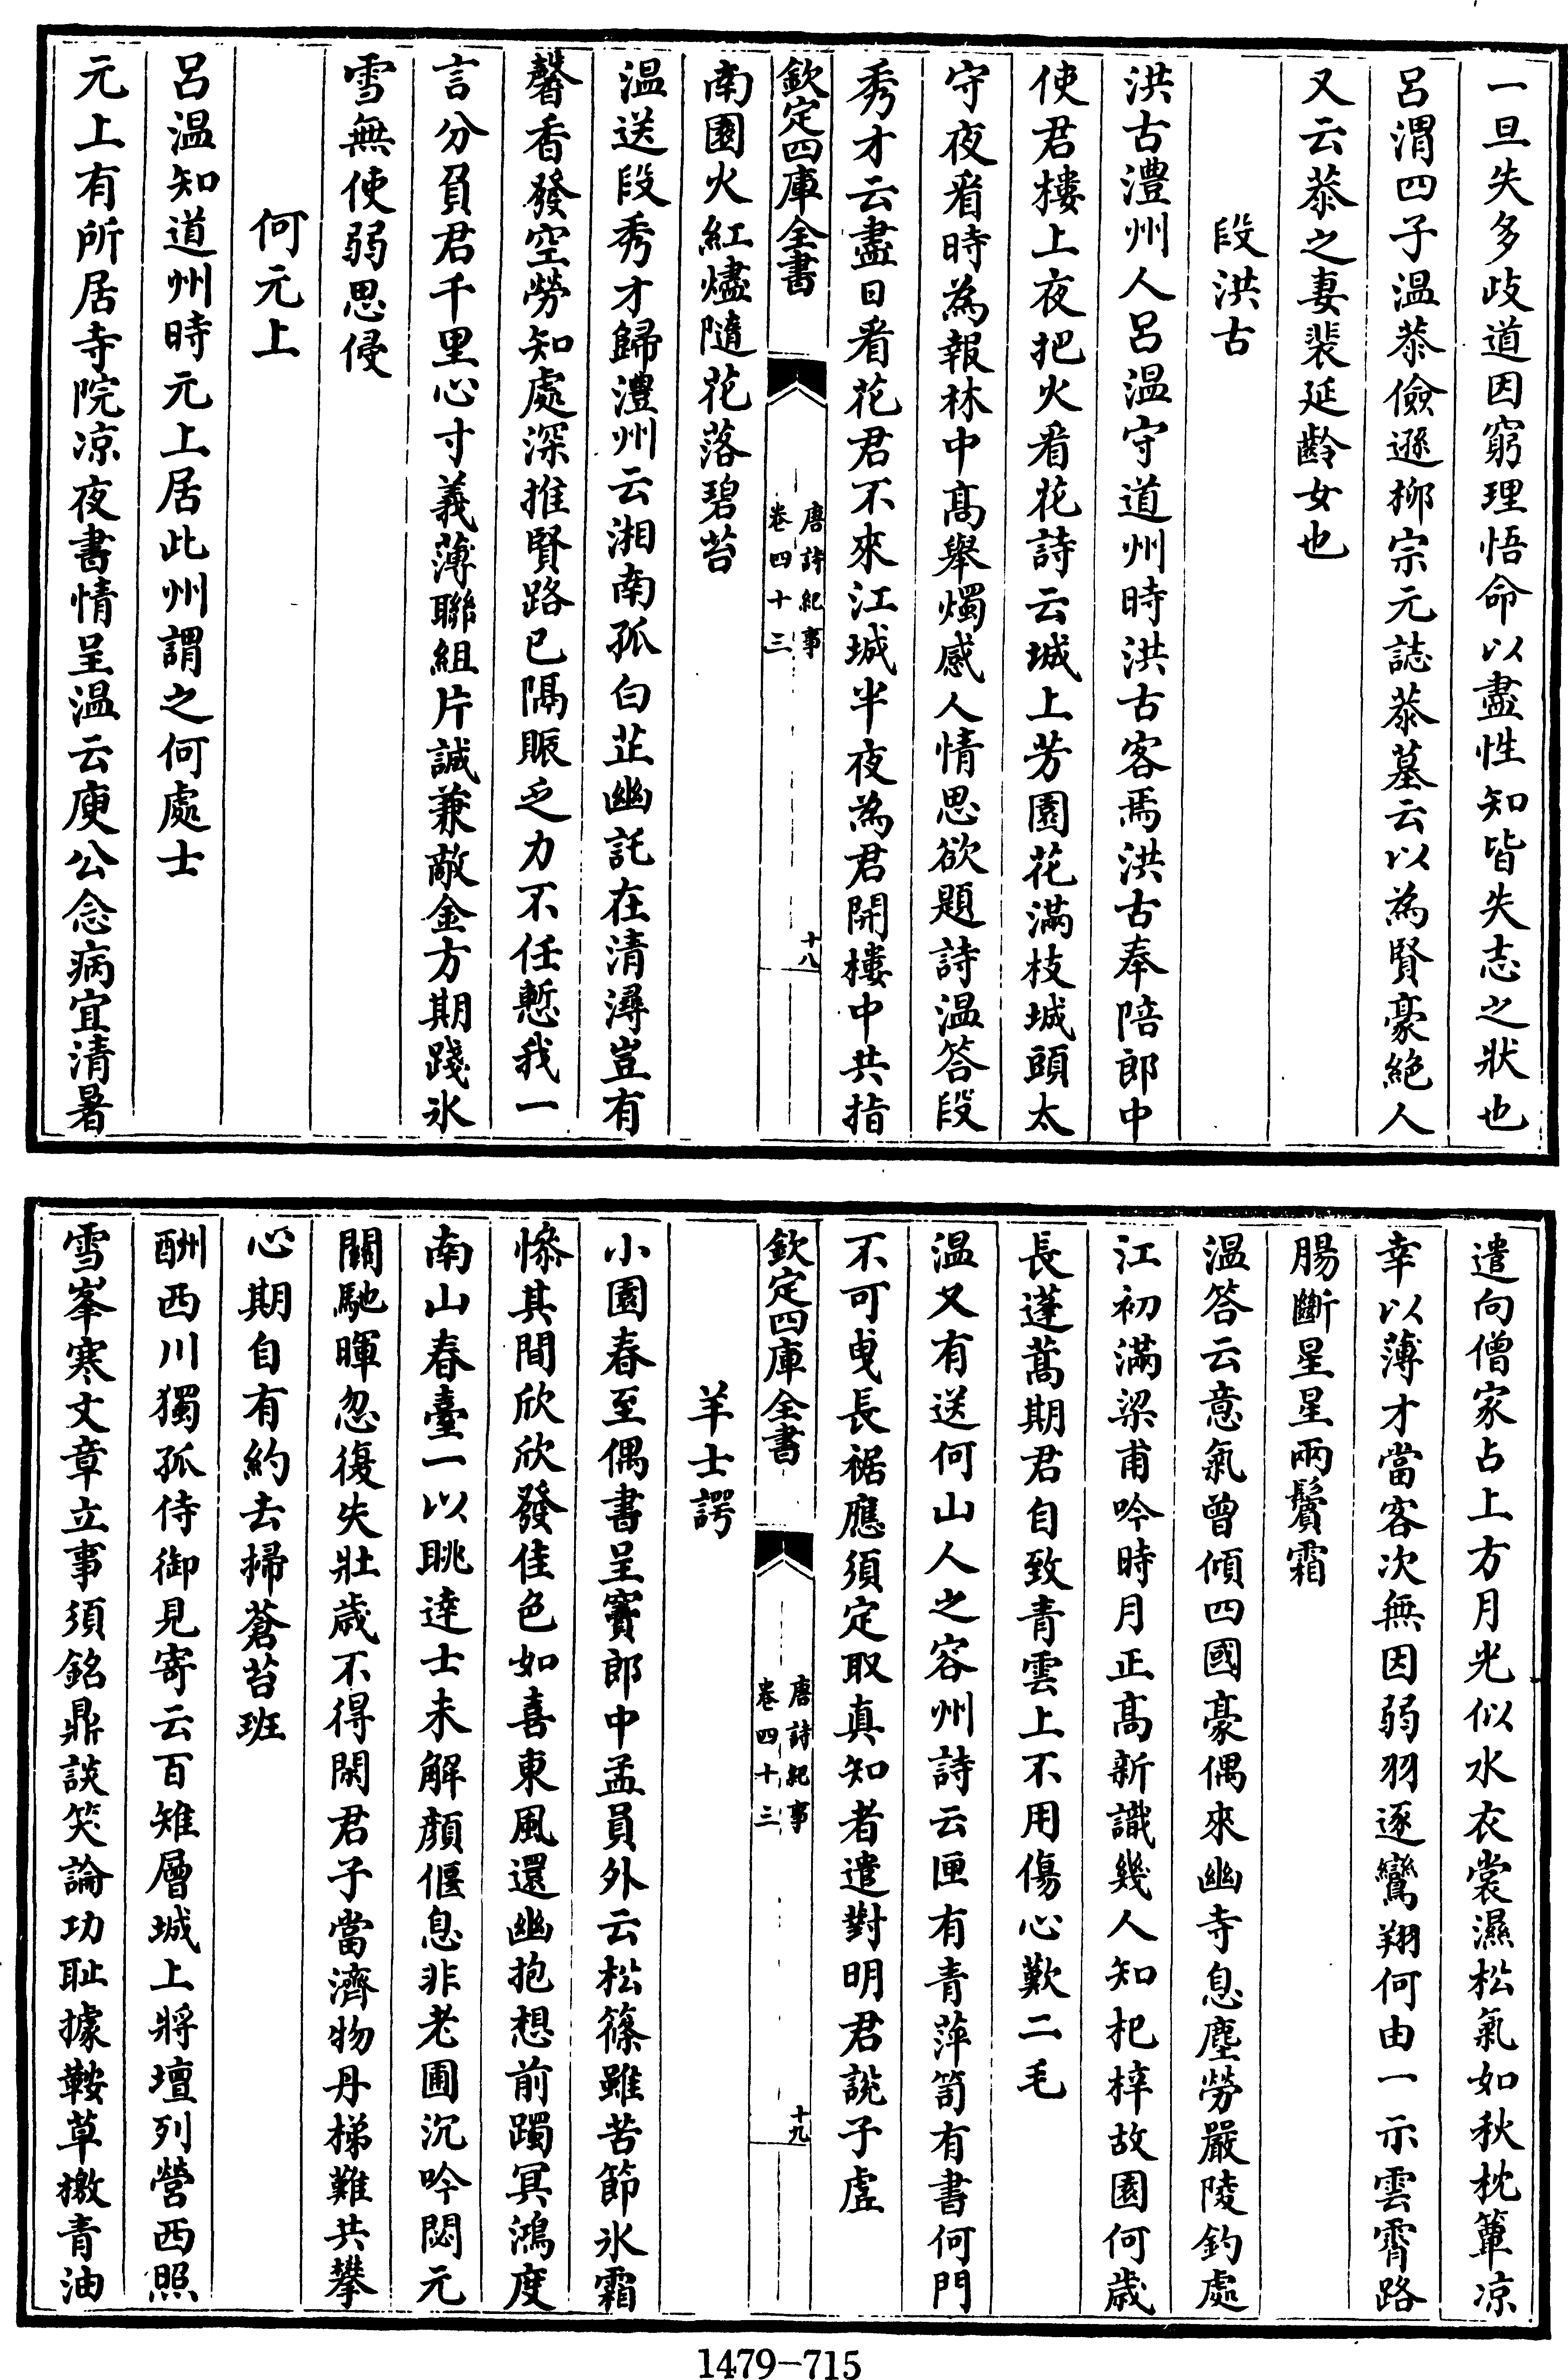 一旦失多歧道因窮理悟命以盡性知皆失志之狀也
呂渭四子温恭儉遜柳宗元誌恭墓云以為賢豪絶人
又云恭之妻裴延齡女也
段洪古
洪古澧州人呂温守道州時洪古客焉洪古奉陪郎中
使君樓上夜把火看花詩云城上芳園花滿枝城頭太
守夜看時為報林中髙舉燭感人情思欲題詩温答段
秀才云盡日看花君不來江城半夜為君開樓中共指
欽定四庫全書
唐詩紀事
卷四十三
十八
南園火紅燼隨花落碧苔
温送段秀才歸澧州云湘南孤白芷幽託在清潯豈有
馨香發空勞知處深推賢路已隔賑乏力不任慙我一
言分負君千里心寸義薄聯組片誠兼敵金方期踐氷
雪無使弱思侵
何元上
呂温知道州時元上居此州謂之何處士
元上有所居寺院凉夜書情呈温云庾公念病宜清暑
遣向僧家占上方月光似水衣裳濕松氣如秋枕簟凉
幸以薄才當客次無因弱羽逐鸞翔何由一示雲霄路
腸斷星星兩鬢霜
温答云意氣曾傾四國豪偶來幽寺息塵勞嚴陵釣處
江初滿梁甫吟時月正髙新識幾人知杞梓故園何歳
長蓬蒿期君自致青雲上不用傷心歎二毛
温又有送何山人之容州詩云匣有青萍笥有書何門
不可曵長裾應須定取真知者遣對明君說子虛
欽定四庫全書
唐詩紀事
卷四十三
十九
羊士諤
小園春至偶書呈竇郎中孟員外云松篠雖苦節氷霜
慘其間欣欣發佳色如喜東風還幽抱想前躅冥鴻度
南山春臺一以眺達士未解顔偃息非老圃沉吟閟元
關馳暉忽復失壯歳不得閑君子當濟物丹梯難共攀
心期自有約去掃蒼苔班
酬西川獨孤侍御見寄云百雉層城上將壇列營西照
雪峯寒文章立事須銘鼎談笑論功耻據鞍草檄青油
1479-715